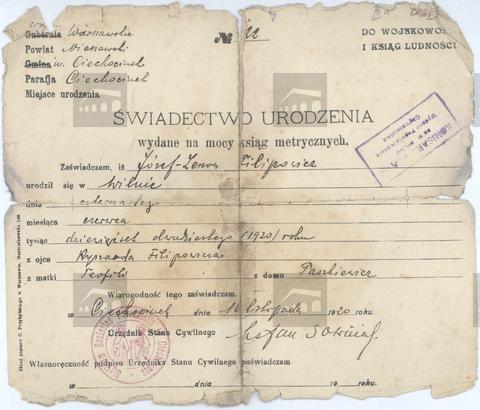 Gubernia Warszawskie
Powiat Nieszawski
Gmina w. Ciechocinek
Parafja Ciechocinek
Miejsce urodzenia
№ 22
DO WOJSKOWO
I KSIĄG LUDNOŚCI
ŚWIADECTWO URODZENIA
wydane na mocy ksiąg metrycznych.
KOMISARZ
Zaświadczam, iż Józef-Zenon Filipowicz
urodził się w Wilnie
dnia czternastego
miesiąca czerwca
tysiąc dziewięćset dwudziestego (1920) roku
z ojca Ryszarda Filipowicza
z matki Teofili z domu Paszkiewicz
Wiarogodność tego zaświadczam.
w Ciechocinek dnia 16 listopada 1920 roku.
Urzędnik Stanu Cywilnego Stefan
Własnoręczność podpisu Urzędnika Stanu Cywilnego poświadczam
w dnia 19 roku.
Skład papieru C. Przybylskiego w Warszawie, Marszałkowska 149